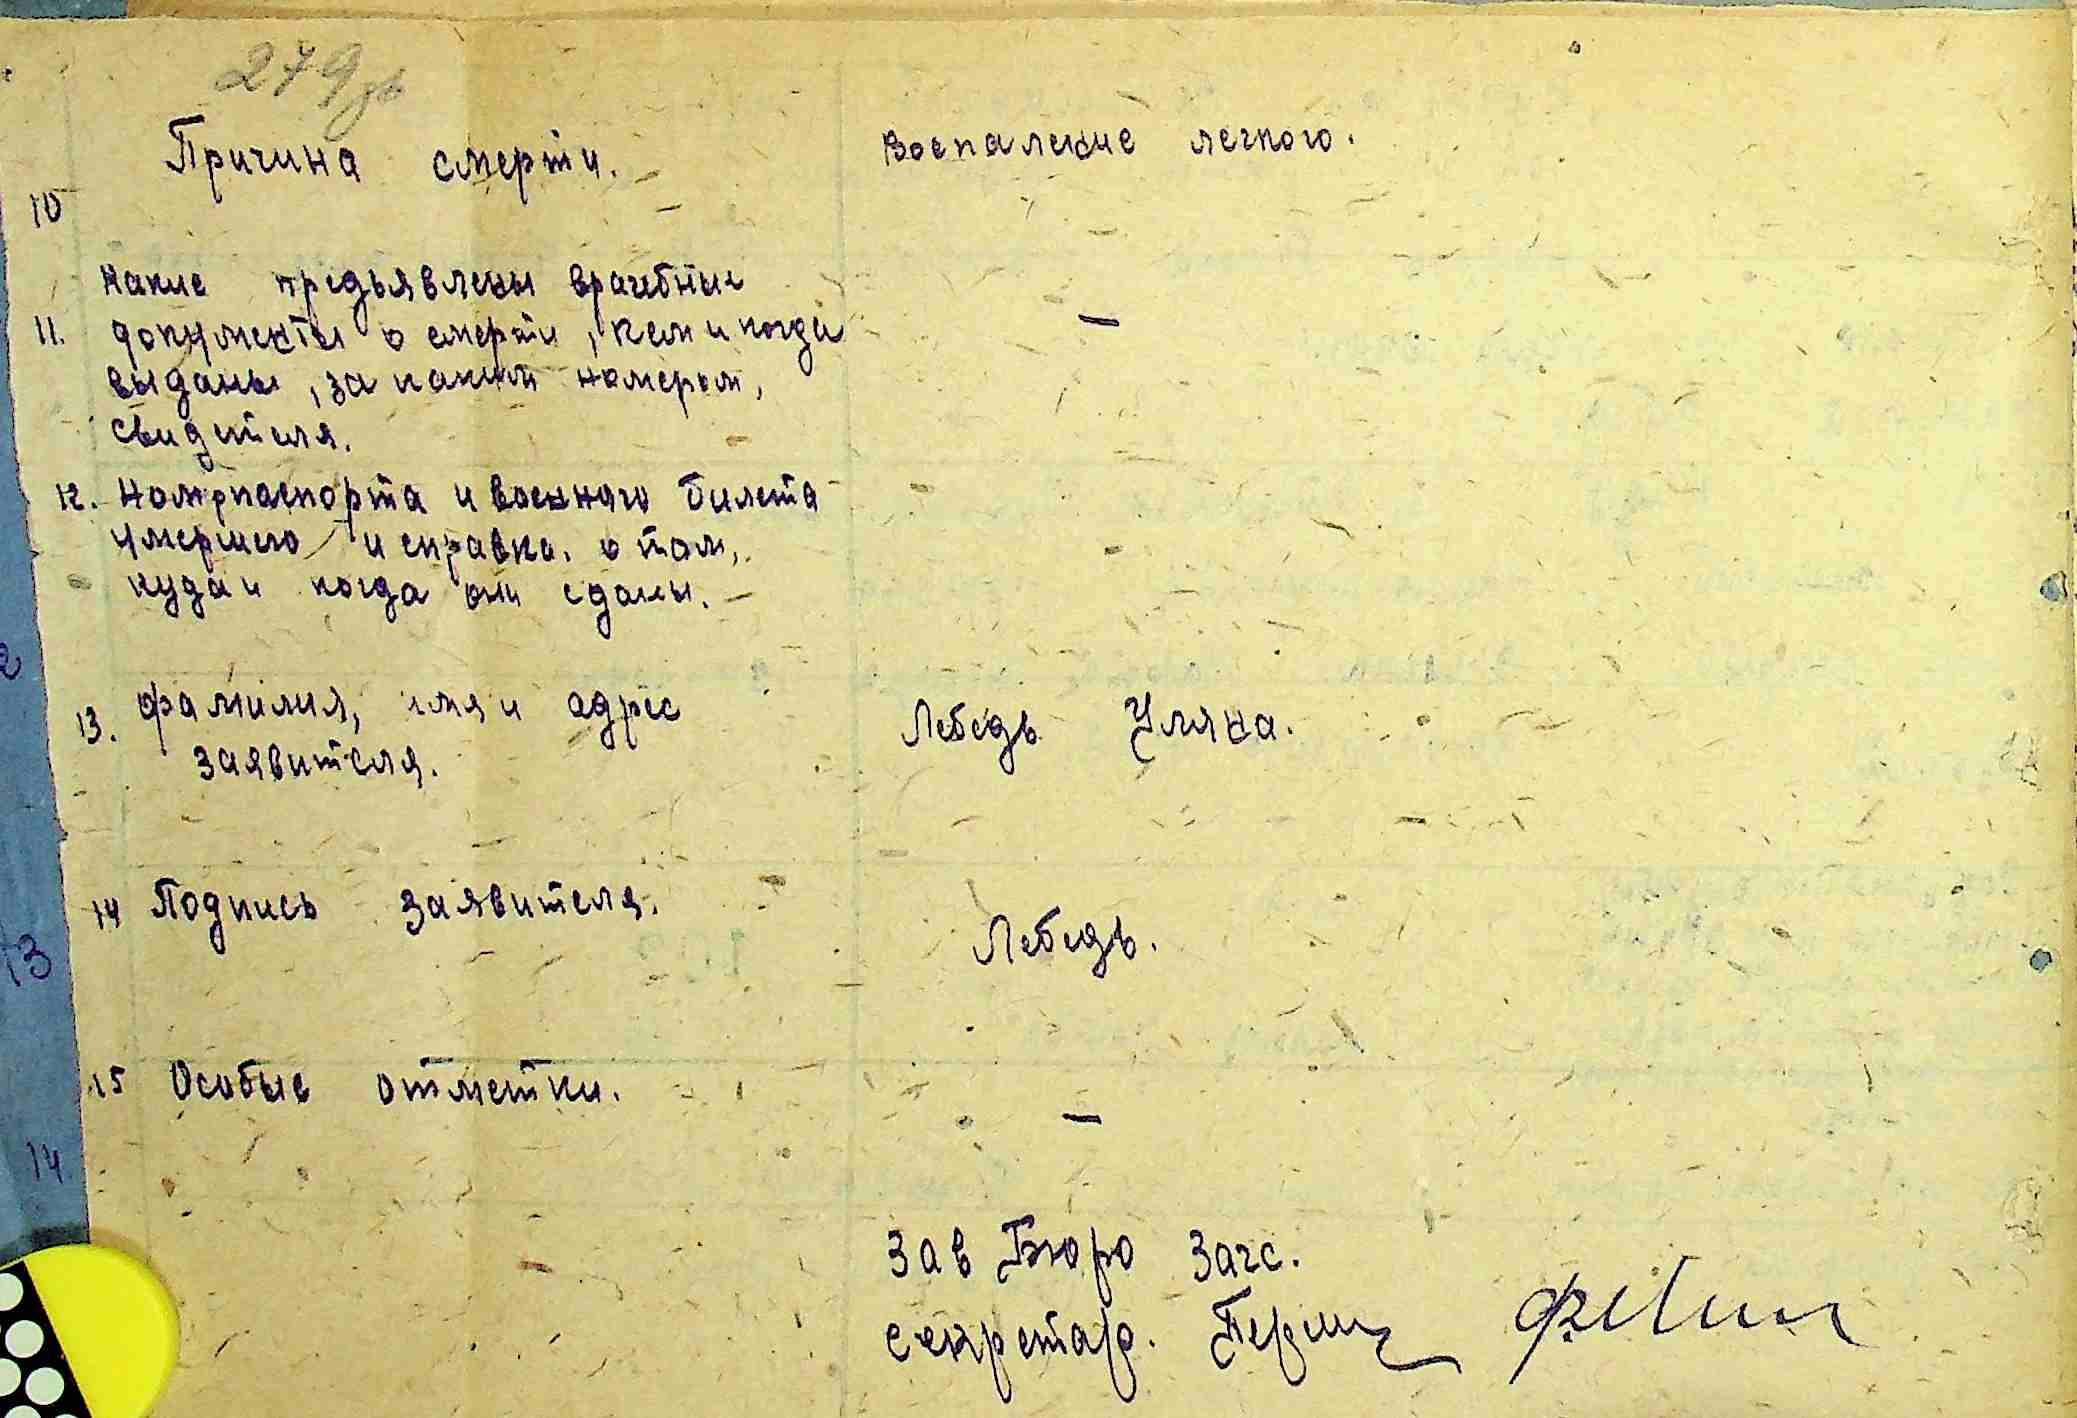 279 зв
Причина смерти. Воспаление легкого.
10
Какие предъявлены врачебные
11. документы о смерти, кем и когда —
выданы, за каким номером,
свидетеля.
12. Номрпаспорта и военного билета
умершего и справка. о том,
куда и когда они сданы.
13. Фамилия, имя и адрес Лебедь Уляна.
заявителя.
14 Подпись заявителя. Лебедь.
15 Особые отметки. —
Зав Бюро Загс.
секретар.
13
14